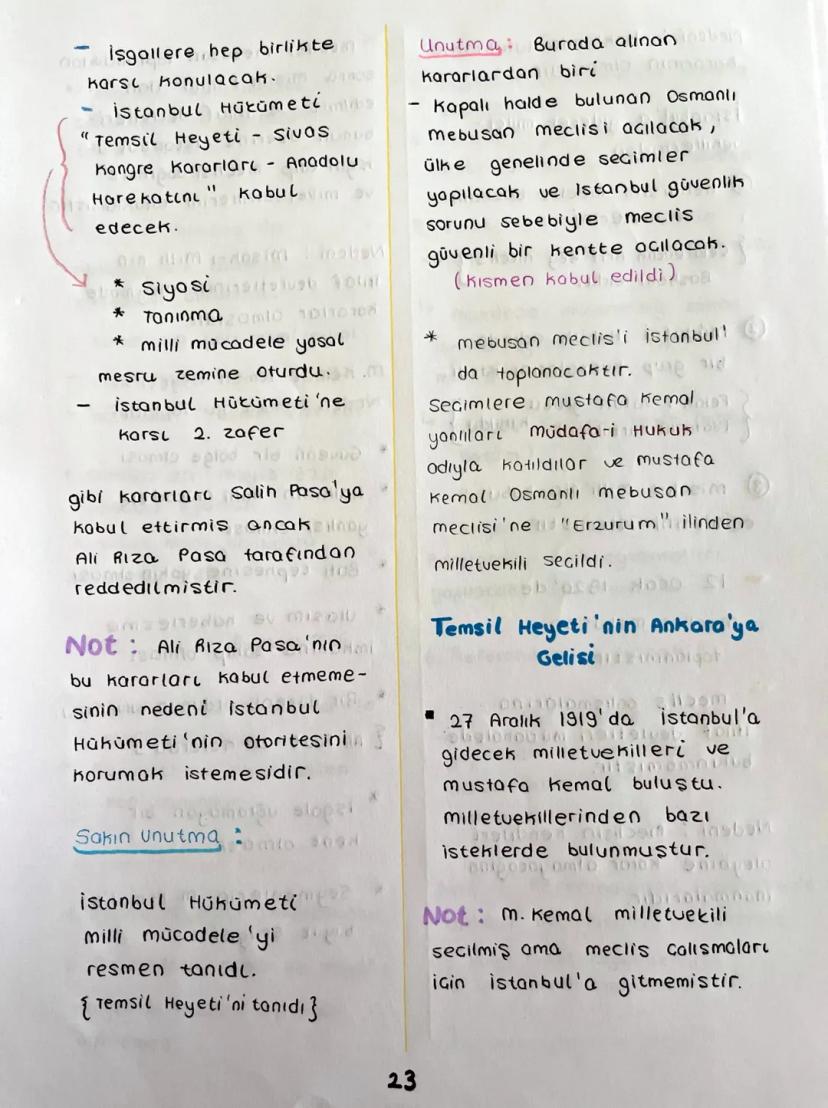 - İsgallere hep birlikte
karsı konulacak.
- İstanbul Hükümeti
"Temsil Heyeti - Sivas
Kongre Kararları - Anadolu
Harekatını" kabul
edecek.
* Siyasi
* Tanınma
* milli mücadele yasal
mesru zemine oturdu.
- İstanbul Hükümeti'ne
Karsı 2. zafer
gibi kararları Salih Pasa'ya
kabul ettirmis ancak
Ali Rıza Pasa tarafından
reddedilmistir.
Not: Ali Rıza Pasa'nın
bu kararları kabul etmeme-
sinin nedeni istanbul
Hükümeti'nin otoritesini
korumak istemesidir.
Sakın Unutma:
istanbul Hükümeti
milli mücadele'yi
resmen tanıdı.
{Temsil Heyeti'ni tanıdı}
Unutma: Burada alınan
kararlardan biri
- Kapalı halde bulunan Osmanlı
mebusan meclisi acılacak,
ülke genelinde secimler
yapılacak ve istanbul güvenlik
sorunu sebebiyle meclis
güvenli bir kentte acılacak.
(kısmen kabul edildi)
* mebusan meclis'i istanbul'
da toplanacaktır.
Secimlere mustafa Kemal
yanlıları müdafa-i Hukuk
adıyla katıldılar ve mustafa
Kemal Osmanlı mebusan
meclisi'ne "Erzurum" ilinden
milletvekili secildi.
Temsil Heyeti'nin Ankara'ya
Gelisi
▪ 27 Aralık 1919'da İstanbul'a
gidecek milletvekilleri ve
mustafa Kemal bulustu.
milletvekillerinden bazı
isteklerde bulunmustur.
Not: M. Kemal milletvekili
secilmiş ama meclis calısmaları
icin istanbul'a gitmemistir.
23